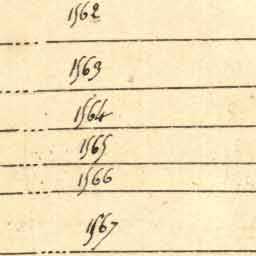 1562
1563
1564
1565
1566
1567